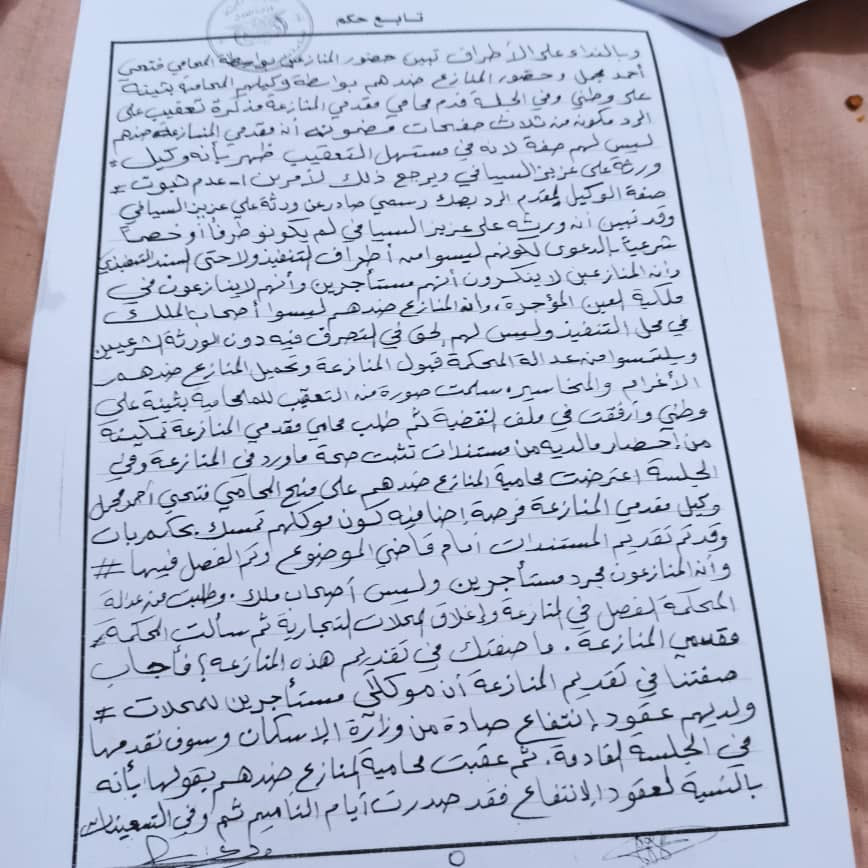 تابع حكم
وبالنداء على الأطراف تبين حضور المنازعين بواسطة المحامي فتحي
أحمد مجمل وحضور المنازع ضدهم بواسطة وكيلهم المحامية بثينة
على وطني وفي الجلسة قدم محامي مقدمي المنازعة مذكرة تعقيب على
الرد مكون من ثلاث صفحات مضمونه أن مقدمي المنازعة ضدهم
ليس لهم صفة لأنه في مستهل التعقيب ظهر بأنه وكيل =
ورثة على عزيز السيافي ويرجع ذلك لأمرين ١- عدم ثبوت =
صفة الوكيل لمقدم الرد بصك رسمي صادر عن ورثة علي عزيز السيافي
وقد تبين أن ورثه على عزيز السيافي لم يكونو طرفاً أو خصماً
شرعياً بالدعوى لكونهم ليسوا من أطراف التنفيذ ولا حتى السند التنفيذي
وأن المنازعين لا ينكرون أنهم مستأجرين وأنهم لا ينازعون في
ملكية العين المؤجرة، وأن المنازع ضدهم ليسوا أصحاب الملك
في محل التنفيذ وليس لهم الحق في التصرف فيه دون الورثة الشرعيين
ويلتمسوا من عدالة المحكمة قبول المنازعة وتحميل المنازع ضدهم
الأغرام والمخاسير سلمت صورة من التعقيب للمحامية بثينة على
وطني وأرفقت في ملف القضية ثم طلب محامي مقدمي المنازعة تمكينه
من إحضار مالديه من مستندات تثبت صحة ماورد في المنازعة وفي
الجلسة اعترضت محامية المنازع ضدهم على منح المحامي فتحي أحمد مجمل
وكيل مقدمي المنازعة فرصة إضافية كون موكلهم تمسك بحكم بات
وقد تم تقديم المستندات أمام قاضي الموضوع وتم الفصل فيها #
وأن المنازعون مجرد مستأجرين وليس أصحاب ملك. وطلبت من عدالة
المحكمة الفصل في المنازعة وإغلاق المحلات التجارية ثم سألت المحكمة
مقدمي المنازعة. ما صفتك في تقديم هذه المنازعه؟ فأجاب
صفتنا في تقديم المنازعة أن موكلي مستأجرين للمحلات #
ولديهم عقود إنتفاع صادة من وزارة الإسكان وسوف نقدمها
في الجلسة القادمة. ثم عقبت محامية المنازع ضدهم بقولها بأنه
بالنسبة لعقود الإنتفاع فقد صدرت أيام التأميم ثم وفي التسعينات